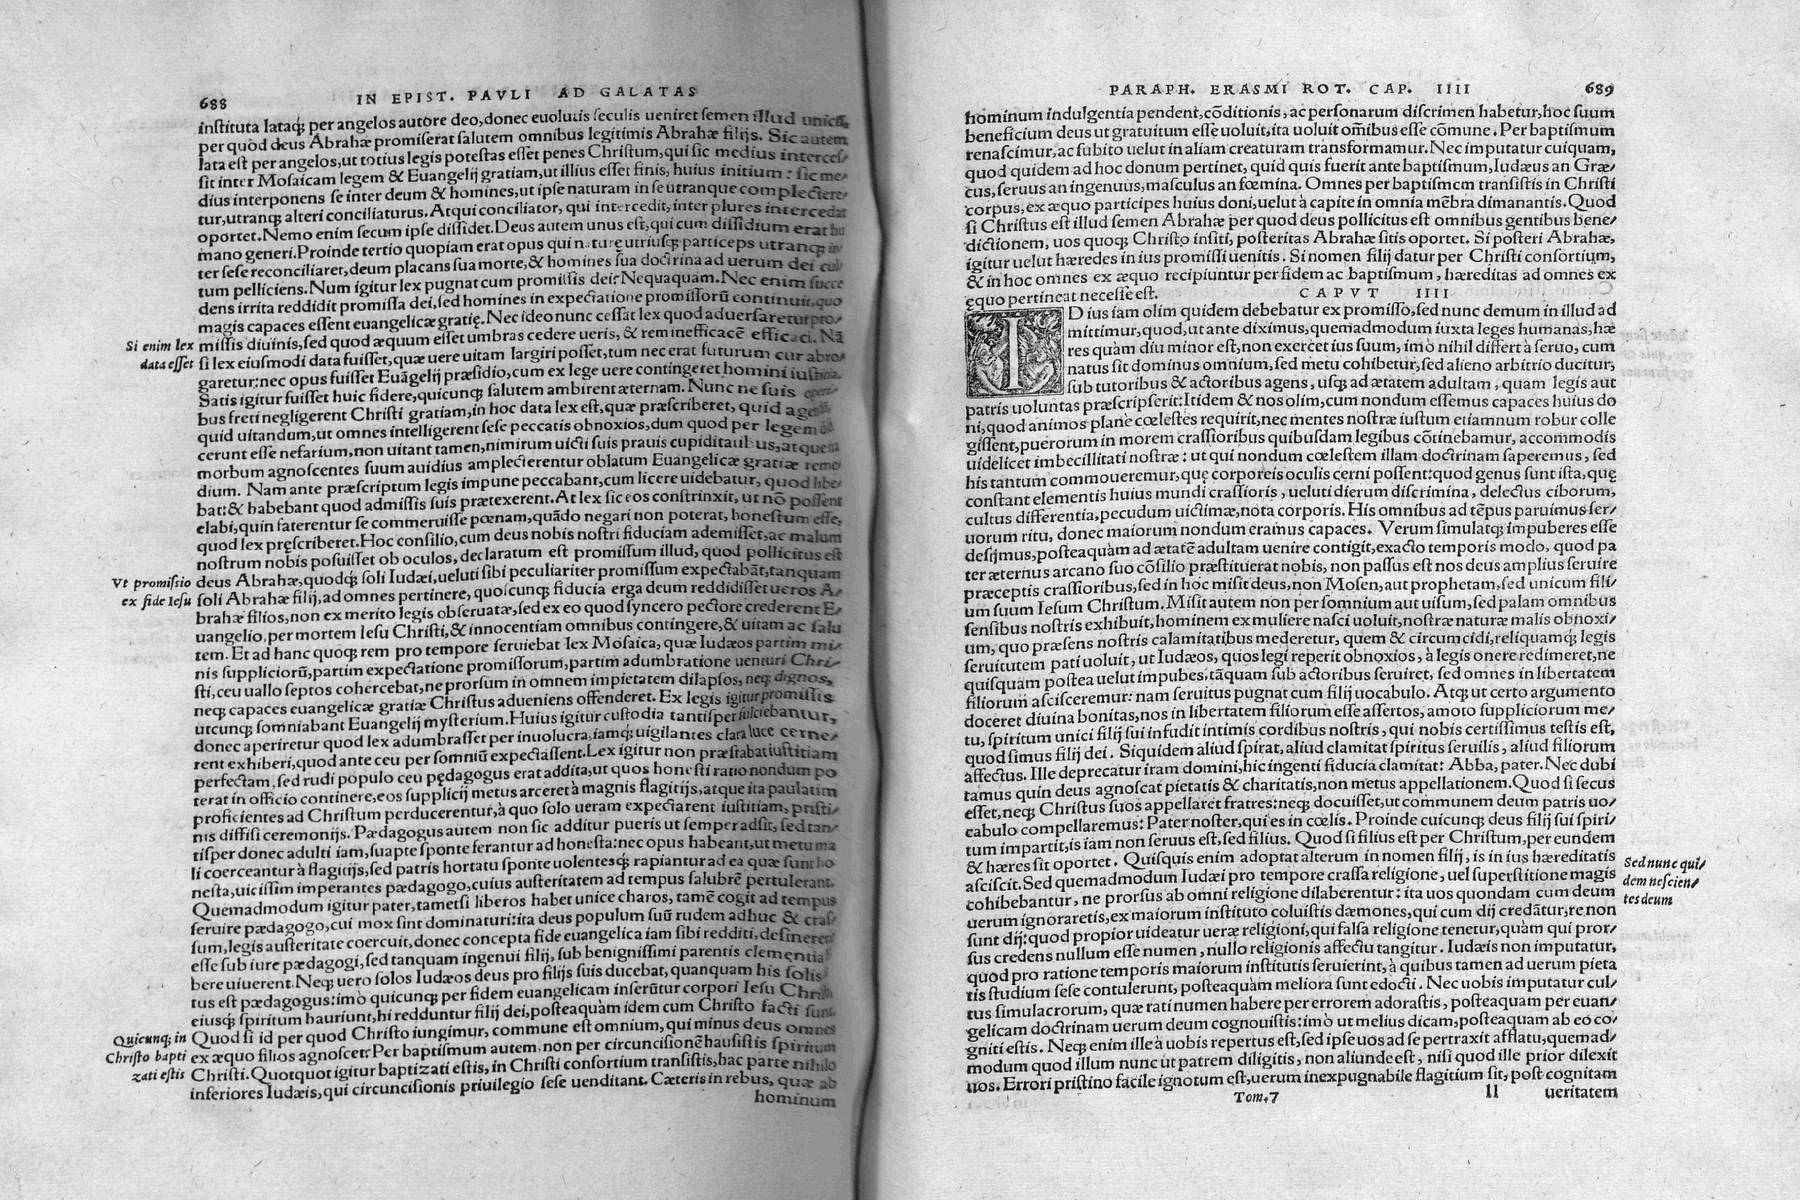 688 IN EPIST. PAVLI AD GALATAS
instituta lataq́; per angelos autore deo, donec euolutis seculis ueniret semen illud unicũ,
per quod deus Abrahæ promiserat salutem omnibus legitimis Abrahæ filijs. Sic autem
lata est per angelos, ut totius legis potestas esset penes Christum, qui sic medius interces/
sit inter Mosaicam legem & Euangelij gratiam, ut illius esset finis, huius initium: sic me/
dius interponens se inter deum & homines, ut ipse naturam in se utranque complectere/
tur, utranq; alteri conciliaturus. Atqui conciliator, qui intercedit, inter plures intercedat
oportet. Nemo enim secum ipse dissidet. Deus autem unus est, qui cum dissidium erat hu
mano generi. Proinde tertio quopiam erat opus qui naturę utriusq; particeps utranq; in/
ter sese reconciliaret, deum placans sua morte, & homines sua doctrina ad uerum dei cul
tum pelliciens. Num igitur lex pugnat cum promissis dei? Nequaquam. Nec enim succe
dens irrita reddidit promissa dei, sed homines in expectatione promissorũ continuit, quo
magis capaces essent euangelicæ gratię. Nec ideo nunc cessat lex quod aduersaretur pro/
missis diuinis, sed quod æquum esset umbras cedere ueris, & rem inefficacẽ efficaci. Nã
Si enim lex
data esset
si lex eiusmodi data fuisset, quæ uere uitam largiri posset, tum nec erat futurum cur abro/
garetur: nec opus fuisset Euãgelij præsidio, cum ex lege uere contingeret homini iustitia.
Satis igitur fuisset huic fidere, quicunq; salutem ambirent æternam. Nunc ne suis operi/
bus freti negligerent Christi gratiam, in hoc data lex est, quæ præscriberet, quid agendũ,
quid uitandum, ut omnes intelligerent sese peccatis obnoxios, dum quod per legem
cerunt esse nefarium, non uitant tamen, nimirum uicti suis prauis cupiditatibus, atque ita
morbum agnoscentes suum auidius amplecterentur oblatum Euangelicæ gratiæ reme
dium. Nam ante præscriptum legis impune peccabant, cum licere uidebatur, quod libe/
bat: & habebant quod admissis suis prætexerent. At lex sic eos constrinxit, ut nõ possent
elabi, quin faterentur se commeruisse pœnam, quãdo negari non poterat, honestum esse,
quod lex pręscriberet. Hoc consilio, cum deus nobis nostri fiduciam ademisset, ac malum
nostrum nobis posuisset ob oculos, declaratum est promissum illud, quod pollicitus est
Vt promissio
ex fide Iesu
deus Abrahæ, quodq́; soli Iudæi, ueluti sibi peculiariter promissum expectabãt, tanquam
soli Abrahæ filij, ad omnes pertinere, quoscunq; fiducia erga deum reddidisset ueros A/
brahæ filios, non ex merito legis obseruatæ, sed ex eo quod syncero pectore crederent E/
uangelio, per mortem Iesu Christi, & innocentiam omnibus contingere, & uitam ac salu
tem. Et ad hanc quoq; rem pro tempore seruiebat lex Mosaica, quæ Iudæos partim mi/
nis suppliciorũ, partim expectatione promissorum, partim adumbratione uenturi Chri/
sti, ceu uallo septos cohercebat, ne prorsum in omnem impietatem dilapsos, neq; dignos,
neq; capaces euangelicæ gratiæ Christus adueniens offenderet. Ex legis igitur promissis
utcunq; somniabant Euangelij mysterium. Huius igitur custodia tantisper fulciebantur,
donec aperiretur quod lex adumbrasset per inuolucra, iamq; uigilantes clara luce cerne/
rent exhiberi, quod ante ceu per somniũ expectassent. Lex igitur non præstabat iustitiam
perfectam, sed rudi populo ceu pędagogus erat addita, ut quos honesti ratio nondum po
terat in officio continere, eos supplicij metus arceret à magnis flagitijs, atque ita paulatim
proficientes ad Christum perducerentur, à quo solo ueram expectarent iustitiam, pristi/
nis diffisi ceremonijs. Pædagogus autem non sic additur pueris ut semper adsit, sed tan/
tisper donec adulti iam, suapte sponte ferantur ad honesta: nec opus habeant, ut metu ma
li coerceantur à flagitijs, sed patris hortatu sponte uolentesq́; rapiantur ad ea quæ sunt ho
nesta, uicissim imperantes pædagogo, cuius austeritatem ad tempus salubrẽ pertulerant.
Quemadmodum igitur pater, tametsi liberos habet unice charos, tamẽ cogit ad tempus
seruire pædagogo, cui mox sint dominaturi: ita deus populum suũ rudem adhuc & cras/
sum, legis austeritate coercuit, donec concepta fide euangelica iam sibi redditi, desinerent
esse sub iure pædagogi, sed tanquam ingenui filij, sub benignissimi parentis clementia
bere uiuerent. Neq; uero solos Iudæos deus pro filijs suis ducebat, quanquam his solis
tus est pædagogus: imò quicunq; per fidem euangelicam inserũtur corpori Iesu Christi,
eiusq́; spiritum hauriunt, hi redduntur filij dei, posteaquàm idem cum Christo facti sunt.
Quicunq; in
Christo bapti
zati estis
Quod si id per quod Christo iungimur, commune est omnium, qui minus deus omnes
ex æquo filios agnoscet? Per baptismum autem, non per circuncisionẽ hausistis spiritum
Christi. Quotquot igitur baptizati estis, in Christi consortium transistis, hac parte nihilo
inferiores Iudæis, qui circuncisionis priuilegio sese uenditant. Cæteris in rebus, quæ ab
hominum
PARAPH. ERASMI ROT. CAP. IIII 689
hominum indulgentia pendent, cõditionis, ac personarum discrimen habetur, hoc suum
beneficium deus ut gratuitum esse uoluit, ita uoluit om̃ibus esse cõmune. Per baptismum
renascimur, ac subito uelut in aliam creaturam transformamur. Nec imputatur cuiquam,
quod quidem ad hoc donum pertinet, quid quis fuerit ante baptismum, Iudæus an Græ/
cus, seruus an ingenuus, masculus an fœmina. Omnes per baptismum transistis in Christi
corpus, ex æquo participes huius doni, uelut à capite in omnia mẽbra dimanantis. Quod
si Christus est illud semen Abrahæ per quod deus pollicitus est omnibus gentibus bene/
dictionem, uos quoq; Christo insiti, posteritas Abrahæ sitis oportet. Si posteri Abrahæ,
igitur uelut hæredes in ius promissi uenitis. Si nomen filij datur per Christi consortium,
& in hoc omnes ex æquo recipiuntur per fidem ac baptismum, hæreditas ad omnes ex
equo pertineat necesse est.
CAPVT IIII
ID ius iam olim quidem debebatur ex promisso, sed nunc demum in illud ad
mittimur, quod, ut ante diximus, quemadmodum iuxta leges humanas, hæ
res quàm diu minor est, non exercet ius suum, imò nihil differt à seruo, cum
natus sit dominus omnium, sed metu cohibetur, sed alieno arbitrio ducitur,
sub tutoribus & actoribus agens, usq; ad ætatem adultam, quam legis aut
patris uoluntas præscripserit: Itidem & nos olim, cum nondum essemus capaces huius do
ni, quod animos planè cœlestes requirit, nec mentes nostræ iustum etiamnum robur colle
gissent, puerorum in morem crassioribus quibusdam legibus cõtinebamur, accommodis
uidelicet imbecillitati nostræ: ut qui nondum cœlestem illam doctrinam saperemus, sed
his tantum commoueremur, quę corporeis oculis cerni possent: quod genus sunt ista, quę
constant elementis huius mundi crassioris, ueluti dierum discrimina, delectus ciborum,
cultus differentia, pecudum uictimæ, nota corporis. His omnibus ad tẽpus paruimus ser/
uorum ritu, donec maiorum nondum eramus capaces. Verum simulatq; impuberes esse
desijmus, posteaquàm ad ætatẽ adultam uenire contigit, exacto temporis modo, quod pa
ter æternus arcano suo cõsilio præstituerat nobis, non passus est nos deus amplius seruire
præceptis crassioribus, sed in hoc misit deus, non Mosen, aut prophetam, sed unicum fili/
um suum Iesum Christum. Misit autem non per somnium aut uisum, sed palam omnibus
sensibus nostris exhibuit, hominem ex muliere nasci uoluit, nostræ naturæ malis obnoxi/
um, quo præsens nostris calamitatibus mederetur, quem & circumcidi, reliquamq; legis
seruitutem pati uoluit, ut Iudæos, quos legi reperit obnoxios, à legis onere redimeret, ne
quisquam postea uelut impubes, tãquam sub actoribus seruiret, sed omnes in libertatem
filiorum ascisceremur: nam seruitus pugnat cum filij uocabulo. Atq; ut certo argumento
doceret diuina bonitas, nos in libertatem filiorum esse assertos, amoto suppliciorum me/
tu, spiritum unici filij sui infudit intimis cordibus nostris, qui nobis certissimus testis est,
quod simus filij dei. Siquidem aliud spirat, aliud clamitat spiritus seruilis, aliud filiorum
affectus. Ille deprecatur iram domini, hic ingenti fiducia clamitat: Abba, pater. Nec dubi
tamus quin deus agnoscat pietatis & charitatis, non metus appellationem. Quod si secus
esset, neq; Christus suos appellaret fratres: neq; docuisset, ut communem deum patris uo/
cabulo compellaremus: Pater noster, qui es in cœlis. Proinde cuicunq; deus filij sui spiri/
tum impartit, is iam non seruus est, sed filius. Quod si filius est per Christum, per eundem
& hæres sit oportet. Quisquis enim adoptat alterum in nomen filij, is in ius hæreditatis
Sed nunc qui/
dem nescien/
tes deum
asciscit. Sed quemadmodum Iudæi pro tempore crassa religione, uel superstitione magis
cohibebantur, ne prorsus ab omni religione dilaberentur: ita uos quondam cum deum
uerum ignoraretis, ex maiorum instituto coluistis dæmones, qui cum dij credãtur, re non
sunt dij: quod propior uideatur ueræ religioni, qui falsa religione tenetur, quàm qui pror/
sus credens nullum esse numen, nullo religionis affectu tangitur. Iudæis non imputatur,
quod pro ratione temporis maiorum institutis seruierint, à quibus tamen ad uerum pieta
tis studium sese contulerunt, posteaquàm meliora sunt edocti. Nec uobis imputatur cul/
tus simulacrorum, quæ rati numen habere per errorem adorastis, posteaquam per euan/
gelicam doctrinam uerum deum cognouistis: imò ut melius dicam, posteaquam ab eo co/
gniti estis. Neq; enim ille à uobis repertus est, sed ipse uos ad se pertraxit afflatu, quemad/
modum quod illum nunc ut patrem diligitis, non aliunde est, nisi quod ille prior dilexit
uos. Errori pristino facile ignotum est, uerum inexpugnabile flagitium sit, post cognitam
Tom. 7 ll ueritatem